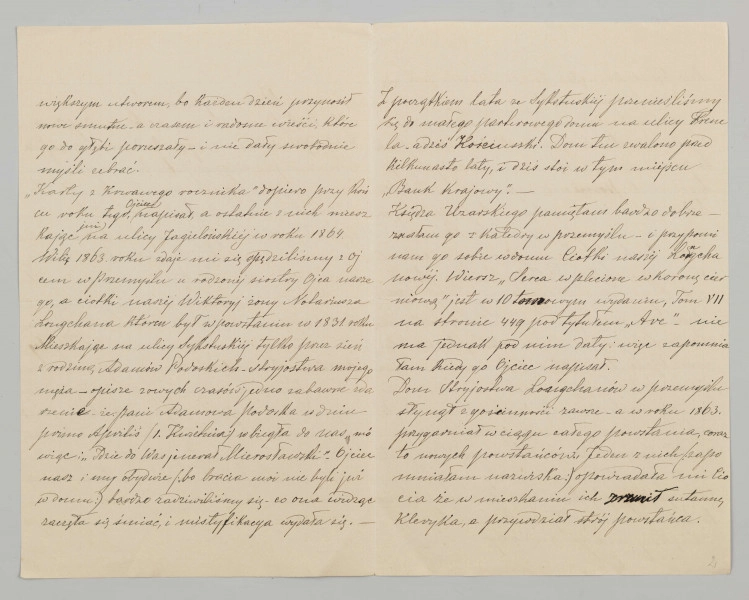 większym utworem, bo każden dzień przynosił
nowe smutne – a czasem i radosne wieści, które
go do głębi poruszały – i nie dały swobodnie
myśli zebrać.
„Karty z krwawego rocznika" dopiero przy koń-
cu roku tego, Ojciec napisał, a ostatnie z nich miesz
kając już na ulicy Jagielońskiéj w roku 1864
Wilię 1863 roku zdaje mi się spędziliśmy z Oj
cem w Przemyślu u rodzonej siostry Ojca nasze
go, a ciotki naszéj Wiktoryi żony Notariusza
Łozychana którzy był w powstaniu w 1831 roku
Mieszkając na ulicy Sykstuskiéj tylko przez sień
z rodziną Adamów Podoskich – stryjostwa mojego
męża – opiszę z owych czasów jedno zabawne zda
rzenie – że pani Adamowa Podoska w dzień
primo Aprilis (1. Kwietnia) wbiegła do nas, mó
wiąc: „Idzie do Was jenerał Mierosławski". Ojciec
nasz i my obydwie (bo bracia moi nie byli już
w domu) bardzo zadziwiliśmy się – co ona widząc
zaczęła się śmiać, i mistyfikacya wydała się. —
Z początkiem lata ze Sykstuskiéj przenieśliśmy
się do małego parterowego domu na ulicy
– a dziś Kościuszki. Dom ten zwalono przed
kilkunastu laty, i dziś stoi w tym miejscu
„Bank Krajowy". —
Księdza pamiętam bardzo dobrze –
znałam go z katedry w Przemyślu – i przypomi
nam go sobie w domu Ciotki naszéj Łozycha
nowéj. Wiersz „Serca wplecione w koronę cier
niową" jest w 10 tomowym wydaniu, Tom VII
na stronie 449 pod tytułem „Ave" – nie
ma jednak pod nim daty: więc zapomnia
łam kiedy go Ojciec napisał.
Dom Stryjostwa Łozychanów w Przemyślu
słynął z gościnności zawsze – a w roku 1863.
przygarniał w ciągu całego powstania, coraz
to nowych powstańców, jeden z nich (zapo
mniałam nazwiska) opowiadała mi Cio
cia że w mieszkaniu ich zrzucił sutannę
kleryka, a przywdział strój powstańca.
2